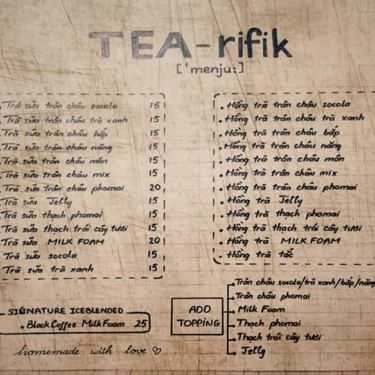 TEA-rifik
['menju:]
Trà sữa trân châu socola 15
Trà sữa trân châu trà xanh 15
Trà sữa trân châu bắp 15
Trà sữa trân châu nắng 15
Trà sữa trân châu mần 15
Trà sữa trân châu mix 15
Trà sữa trân châu phomai 20
Trà sữa Jelly 15
Trà sữa thạch phomai 15
Trà sữa thạch trái cây tươi 15
Trà sữa MILK FOAM 20
Trà sữa socola 15
Trà sữa trà xanh 15
Hồng trà trân châu socola
Hồng trà trân châu trà xanh
Hồng trà trân châu bắp
Hồng trà trân châu nắng
Hồng trà trân châu mần
Hồng trà trân châu mix
Hồng trà trân châu phomai
Hồng trà Jelly
Hồng trà thạch phomai
Hồng trà thạch trái cây tươi
Hồng trà MILK FOAM
Hồng trà tắc
SIGNATURE ICEBLENDED
Black Coffee MilkFoam 25
homemade with love
ADD
TOPPING
Trân châu socola/trà xanh/bắp/nắng
Trân châu phomai
Milk Foam
Thạch phomai
Thạch trái cây tươi
Jelly